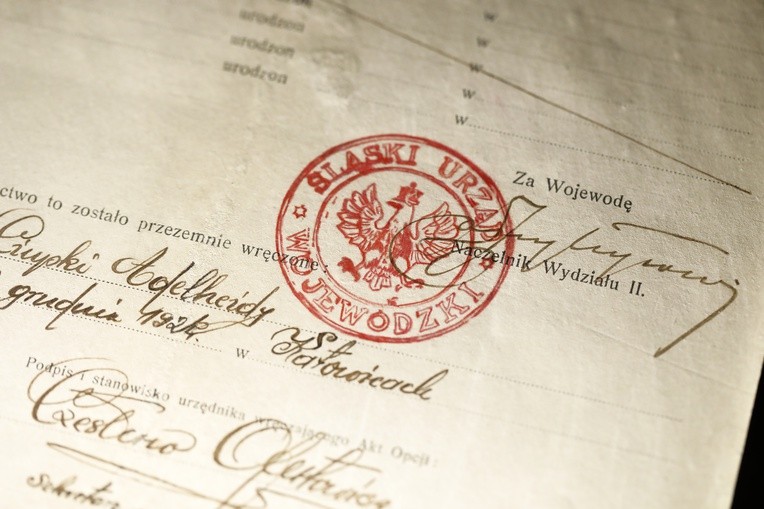 urodzon
urodzon
urodzon w
urodzon w
w
w
w
ŚLĄSKI URZĄD WOJEWÓDZKI
Za Wojewodę
Naczelnik Wydziału II.
ctwo to zostało przezemnie wręczone:
Czupki Adelheidy
grudnia 1924. w Katowicach
Podpis i stanowisko urzędnika wręczającego Akt Opcji:
Czesława